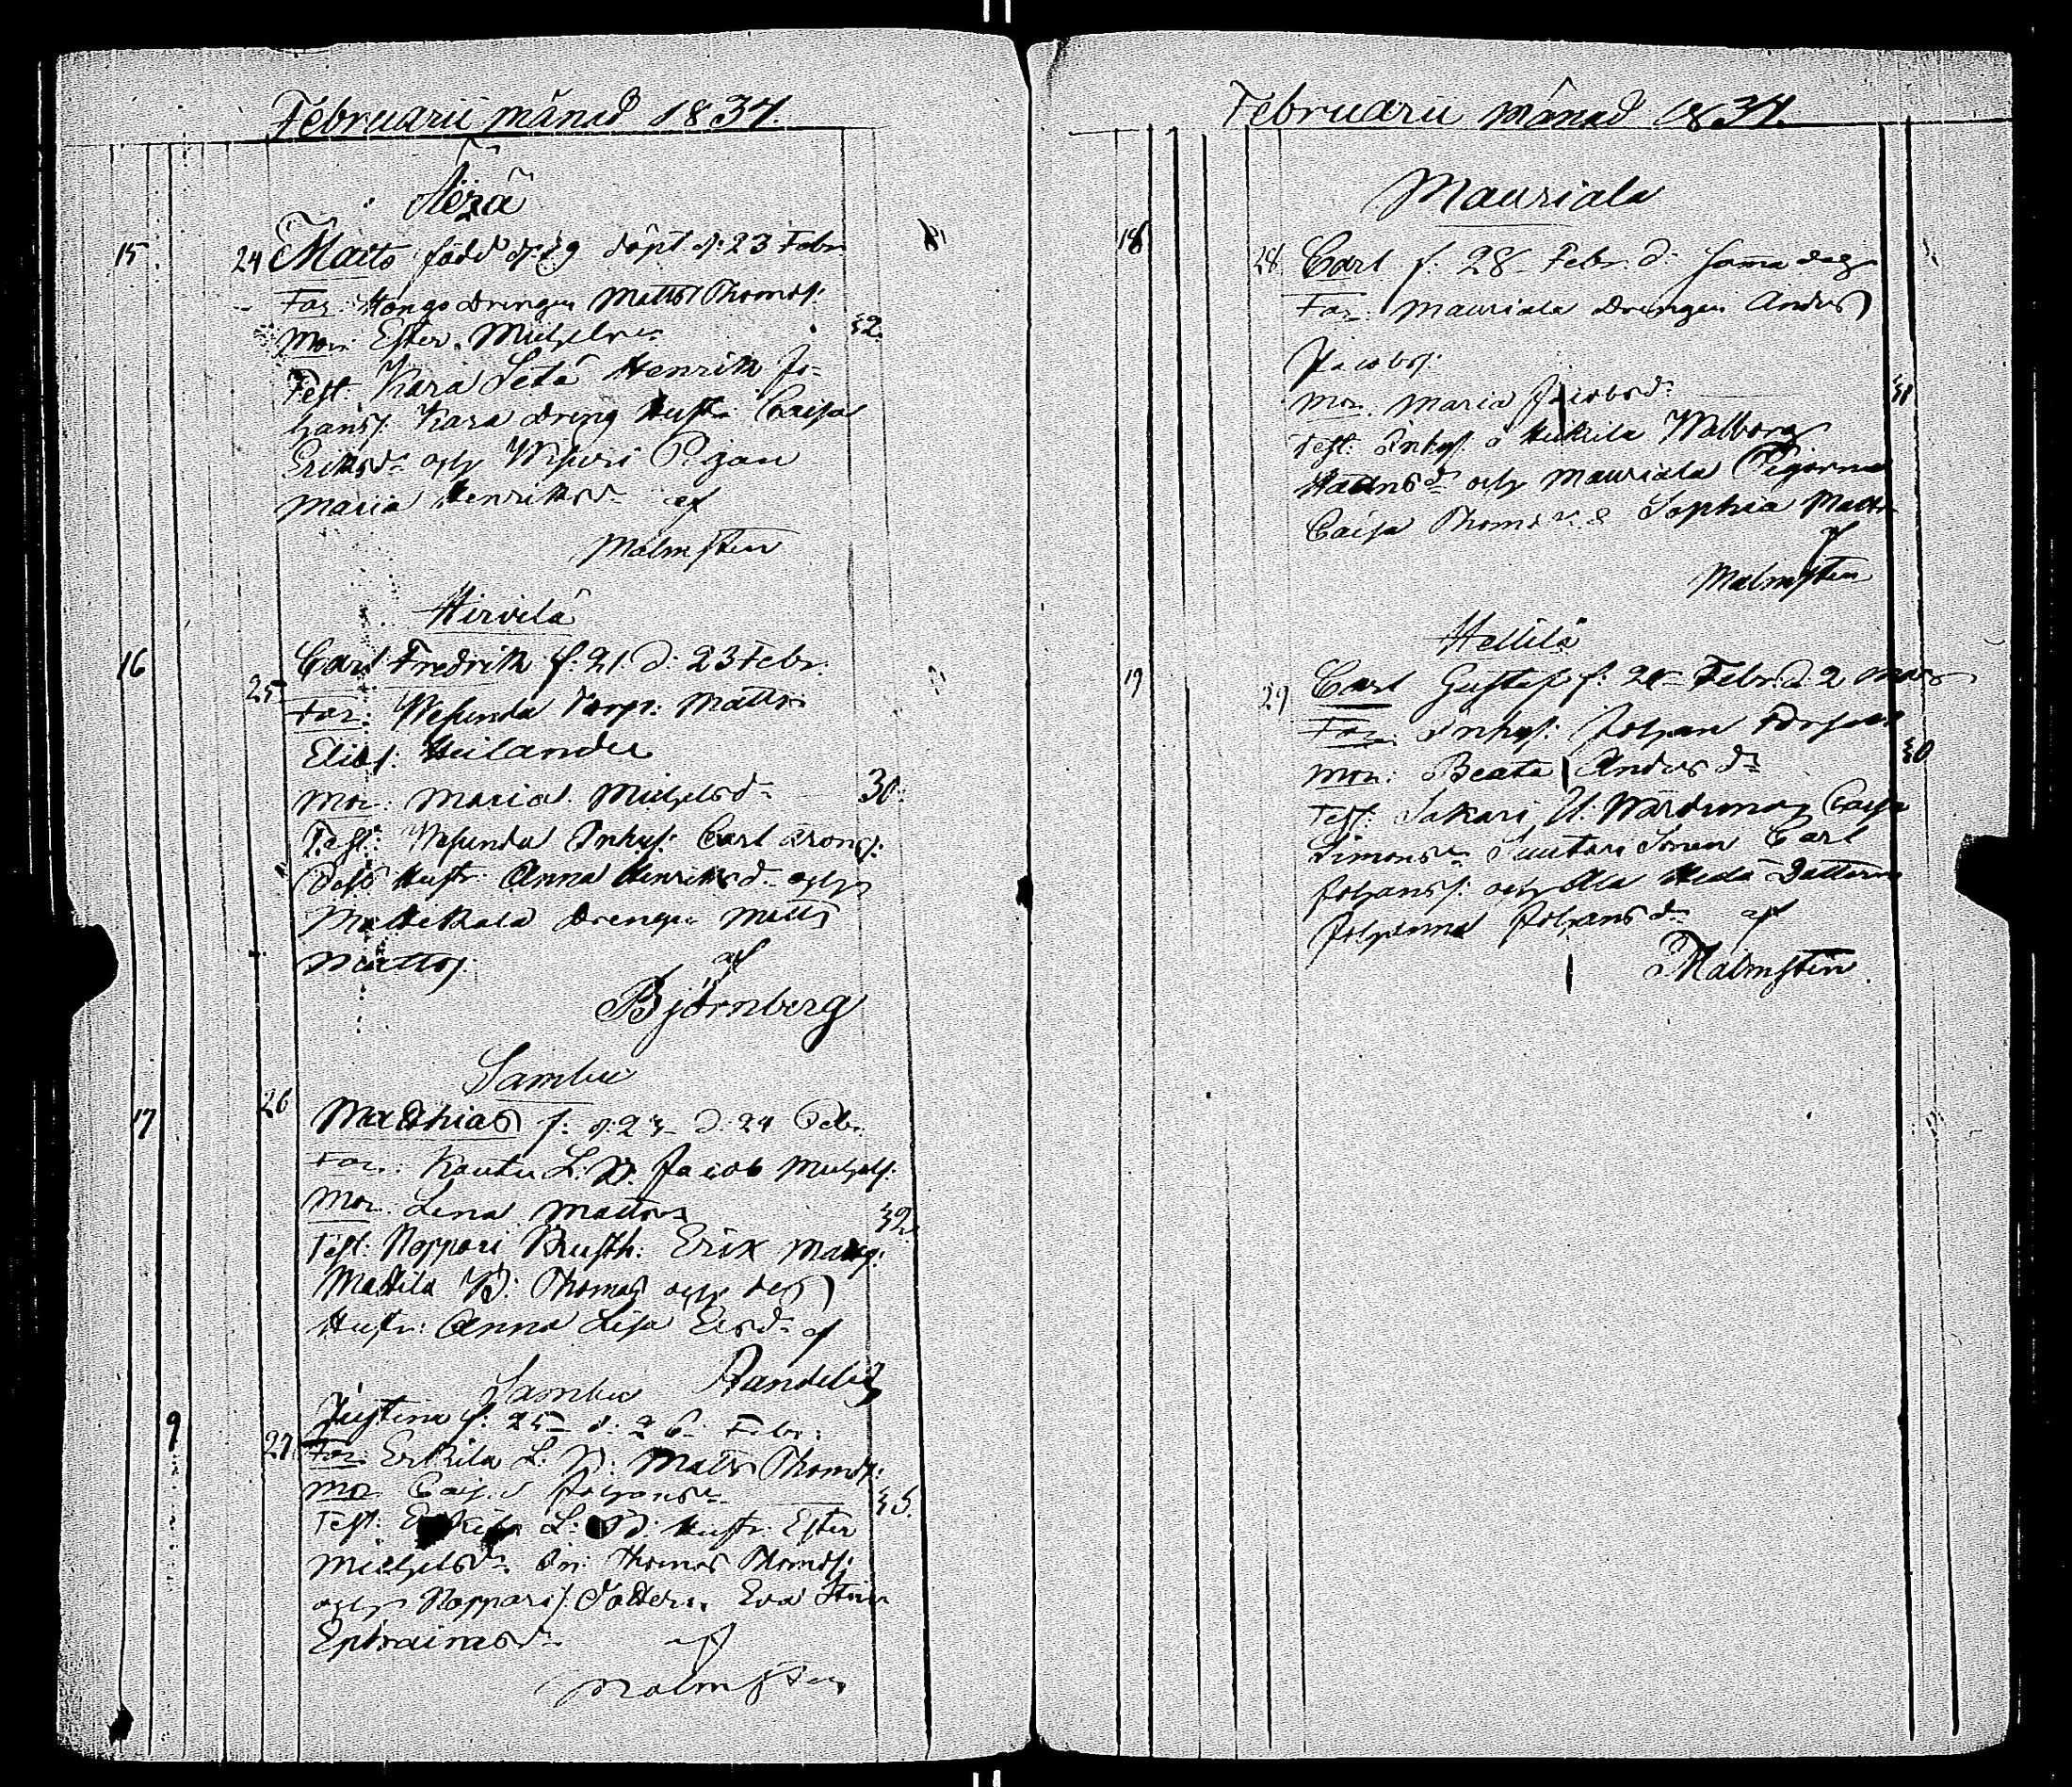 Februarii månad 1834.
15
24 Matts född d: 19 döpt d: 23 Febr.
Far: Hongo Drengen Matts Thomas:
Mor: Ester Michelsd
32.
Test: Kara Henrik Jo-
hans: Kara Dreng Hustr: Caisa
Eriksdr och Pigan
Maria Henriksdr af
Malmsten
Hirvilä
16
25 Carl Fredrik f: 21 d: 23 Febr.
Far: Wesunda Torp: Matts
Elias:
Mor: Maria Michelsd:
30:
Test: Wesunda Inhys: Carl Arons:
Dess Hustr: Anna Henriksd: och
Drengen Matts
Matts: af
Björnberg
Sambu
17
26 Matthias f: d: 23 d: 24 Febr.
Far: Kautu L: B. Jacob Michels:
Mor. Lena Mattsdr
32.
Test: Noppari Erik
Mattila B: Thomas och des
Hustr: Anna Lisa Ersdr af
Sambu
9
27 Justina f: 25 d: 26 Febr:
Far: Erkkila L: B: Matts Thomas:
Mor Caisa Johansdr
35.
Test: L: B: Hustr: Ester
Michelsdr Dr: Thomas Thomas:
och Noppari Dottern Eva Stina
Ephraimsdr af
Malmsten
Februarii månad 1834.
Mauriala
18
28 Carl f: 28 Febr. d: sama dag
Far: Mauriala Drengen Anders
Jacobs:
Mor. Maria Jacobsdr
31
Test: Inhys: å Heikkila Walborg
Hansdr och Mauriala Pigorna
Caisa Thomsdr & Sophia Matts
af
Malmsten
Hellilä
19
29 Carl Gustaf f: Febr. d. 2 Mars
Far. Inhys: Johan
Mor: Beata Andersdr
30
Test: Sakari Caisa
Simonsdr Suutari Sonen Carl
Johans: och Dottern
Johanna Johansdr af
Malmsten.